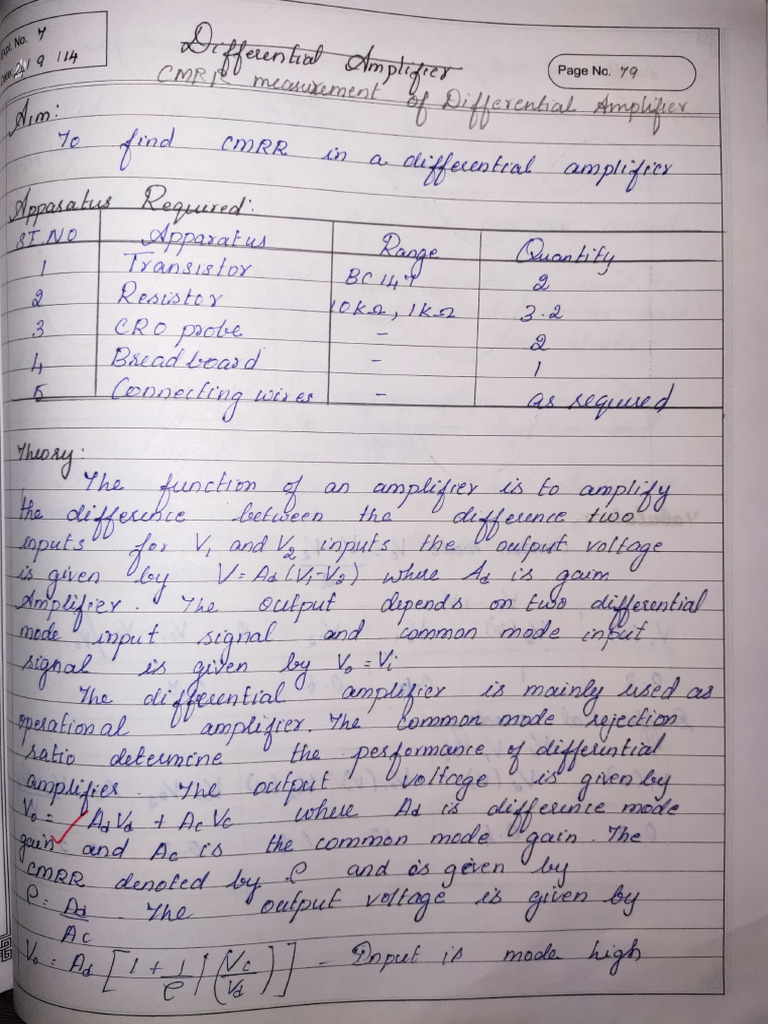 Expl. No. 7
Date 24/9/14
Differential Amplifier
Page No. 79
CMRR measurement of Differential Amplifier
Aim:
To find CMRR in a differential amplifier
Apparatus Required:
ST.NO Apparatus Range Quantity
1 Transistor BC147 2
2 Resistor 10kΩ, 1kΩ 3.2
3 CRO probe - 2
4 Bread board - 1
5 Connecting wires - as required
Theory:
The function of an amplifier is to amplify
the difference between the difference two
inputs for V1 and V2 inputs the output voltage
is given by V = Ad (V1-V2) where Ad is gain
Amplifier. The output depends on two differential
mode input signal and common mode input
signal is given by Vo = Vi
The differential amplifier is mainly used as
operational amplifier. The common mode rejection
ratio determine the performance of differential
amplifier. The output voltage is given by
Vo = Ad Vd + Ac Vc where Ad is difference mode
gain and Ac is the common mode gain. The
CMRR denoted by ρ and is given by
ρ = Ad/Ac. The output voltage is given by
Vo = Ad [1 + 1/ρ] (Vc/Vd)] - Input is mode high